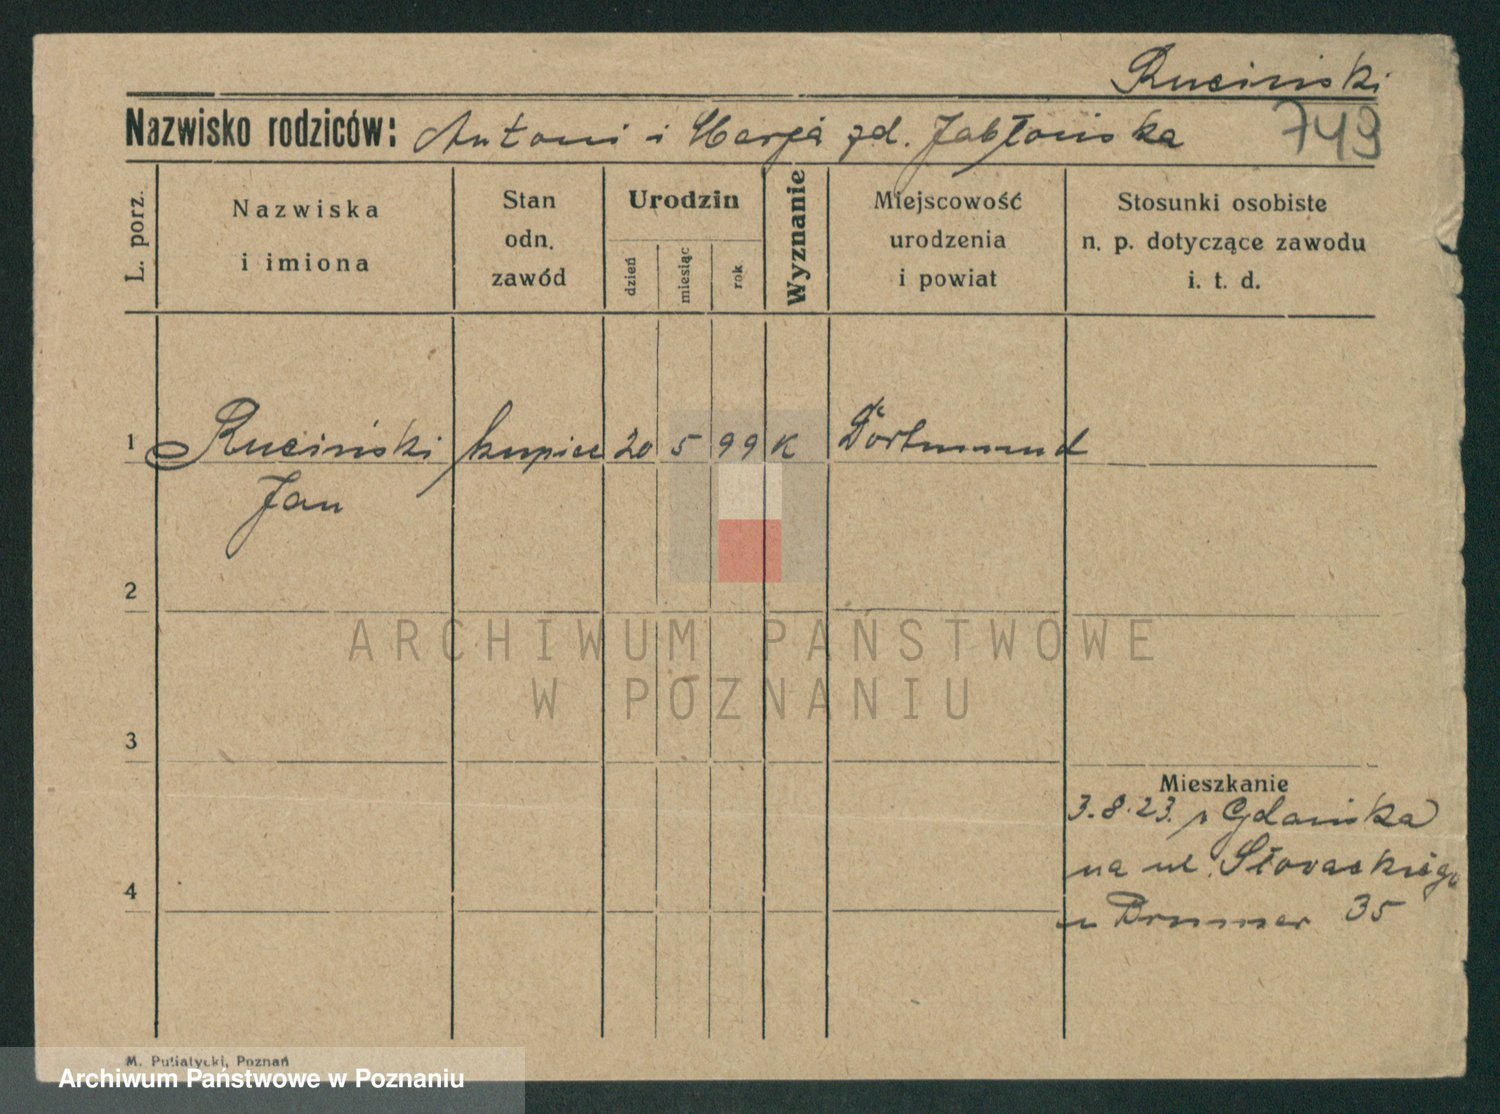 Ruciński
749
Nazwisko rodziców: Antoni i Marja zd. Jabłońska
L. porz.
Nazwiska
i imiona
Stan
odn.
zawód
Urodzin
dzień
miesiąc
rok
Wyznanie
Miejscowość
urodzenia
i powiat
Stosunki osobiste
n. p. dotyczące zawodu
i. t. d.
1 Ruciński kupiec 20 5 99 K Dortmund
Jan
2
ARCHIWUM PAŃSTWOWE
W POZNANIU
3
Mieszkanie
3.8.23. z Gdańska
4
na ul. Słowackiego
u 35
M. Putiatycki, Poznań
Archiwum Państwowe w Poznaniu